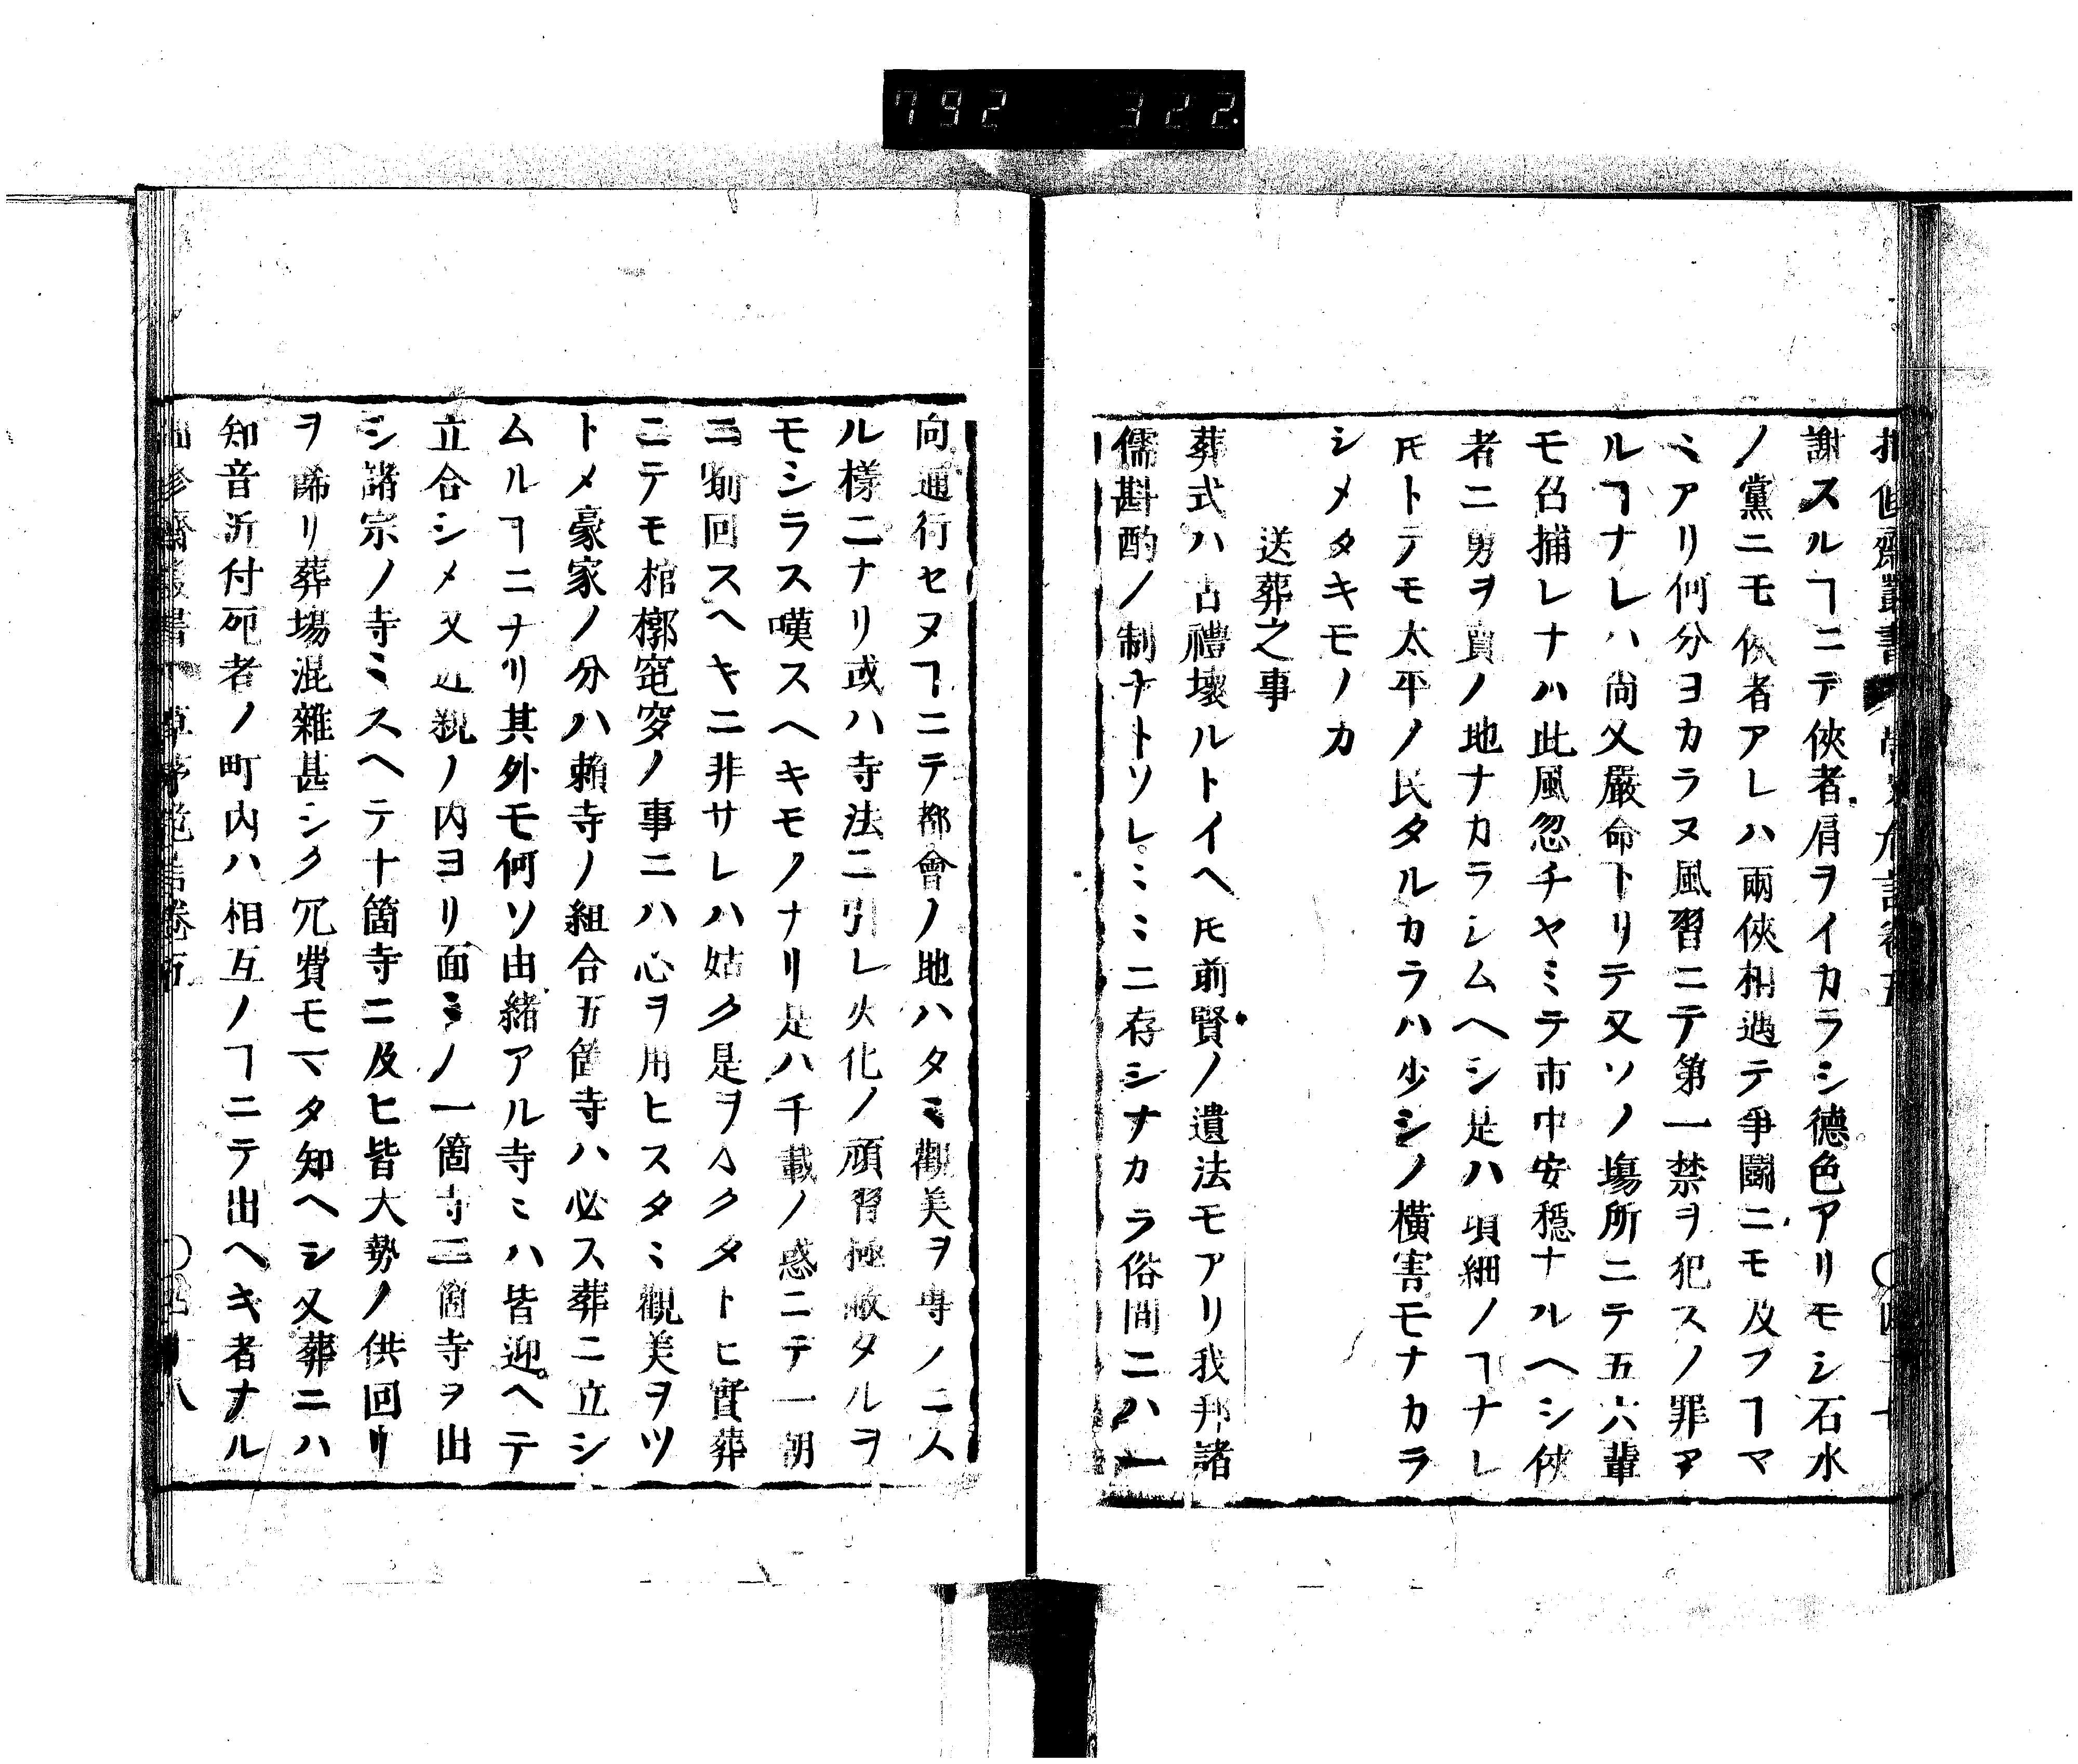 792 322.
謝スルヿニテ俠者肩ヲイカラシ德色アリモシ石水
ノ黨ニモ俠者アレハ兩俠相遇テ爭鬪ニモ及フヿマ
ミアリ何分ヨカラヌ風習ニテ第一禁ヲ犯スノ罪ア
ルヿナレハ尚又嚴命下リテ又ソノ塲所ニテ五六輩
モ召捕レナハ此風忽チヤミテ市中安穩ナルヘシ俠
者ニ男ヲ賣ノ地ナカラシムヘシ是ハ瑣細ノヿナレ
𪜈トテモ太平ノ民タルカラハ少シノ橫害モナカラ
シメタキモノカ
送葬之事
葬式ハ古禮壞ルトイヘ𪜈前賢ノ遺法モアリ我邦諸
儒斟酌ノ制ナトソレミミニ存シナカラ俗間ニハ一
向通行セヌヿニテ都會ノ地ハタミ觀美ヲ專ノニス
ル樣ニナリ或ハ寺法ニ引レ火化ノ頑習極敝タルヲ
モシラス嘆スヘキモノナリ是ハ千載ノ惑ニテ一朝
ニ匊回スヘキニ非サレハ姑ク是ヲヘクタトヒ實葬
ニテモ棺槨窀穸ノ事ニハ心ヲ用ヒスタミ觀美ヲツ
トメ豪家ノ分ハ賴寺ノ組合五箇寺ハ必ス葬ニ立シ
ムルヿニナリ其外モ何ソ由緒アル寺ミハ皆迎ヘテ
立合シメ又近親ノ內ヨリ面ミノ一箇寺二箇寺ヲ出
シ諸宗ノ寺ミスヘテ十箇寺ニ及ヒ皆大勢ノ供回リ
ヲ歸リ葬塲混雜甚シク冗費モマタ知ヘシ又葬ニハ
知音近付死者ノ町內ハ相互ノヿニテ出ヘキ者ナル